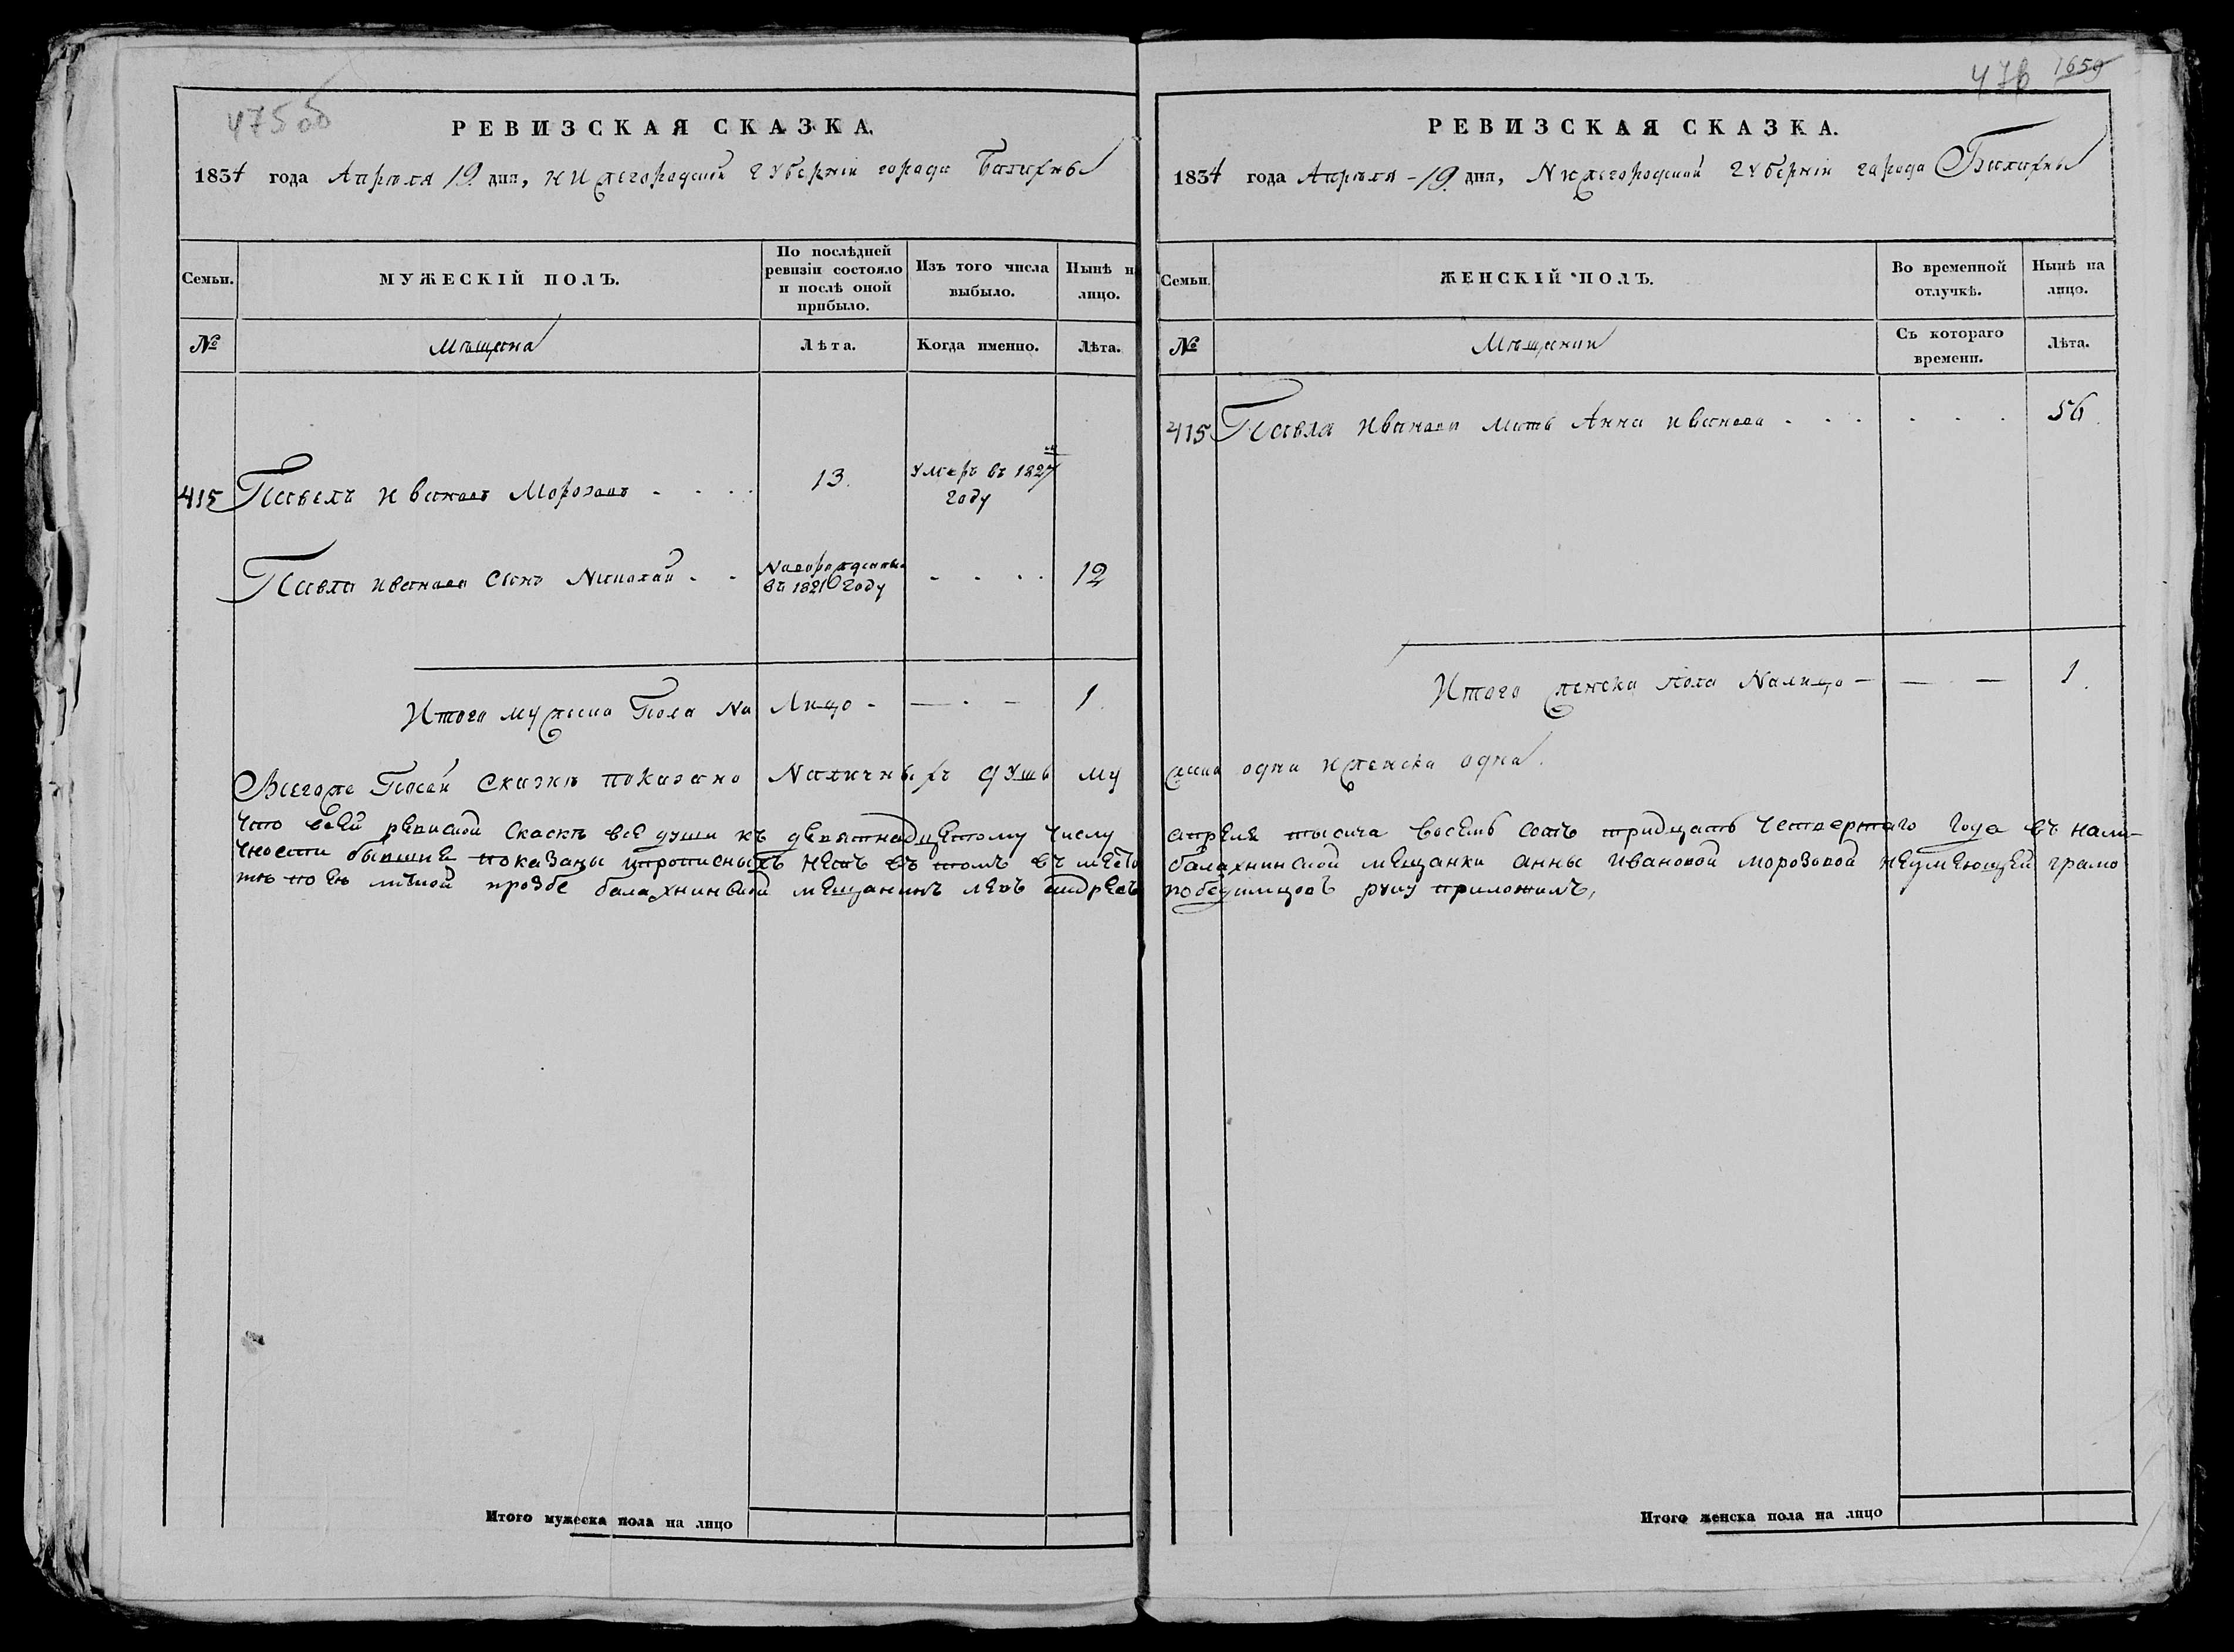 475 об
РЕВИЗСКАЯ СКАЗКА.
1834 года Апреля 19. дня, нижегородской Губерніи города Балахны
Семьи.
МУЖЕСКІЙ ПОЛЪ.
По послѣдней
ревизіи состояло
и послѣ оной
прибыло.
Изъ того числа
выбыло.
Нынѣ на
лицо.
№
Мѣщена
Лѣта.
Когда именно.
Лѣта.
415 Павелъ Ивановъ Морозовъ - . . . 13. Умеръ въ 1827м
году
Павла Иванова Сынъ Николай - - Новорожденны
въ 1821 Году - . . . 12
Итого мужеска Пола На Лицо - — . — 1.
476 1659
РЕВИЗСКАЯ СКАЗКА.
1834 года Апреля - 19. дня, Нижегородской Губерніи города Балахны
Семьи.
ЖЕНСКІЙ ПОЛЪ.
Во временной
отлучкѣ.
Нынѣ на
лицо.
№
Мѣщенки
Съ котораго
времени.
Лѣта.
415 Павла Иванова Мать Анна Иванова . . . . . . 56.
Итого женска пола Налицо — — — 1.
Всегоже Посей Сказкѣ показано Наличныхъ душъ мужеска одна и женска одна.
что всей ревиской Скаскѣ все души къ девятнадцетому числу апреля тысеча восемь сотъ тридцать четвертаго года въ нали-
чности бывшие показаны прописныхъ нетъ въ томъ вместо балахнинской мещанки анны Ивановой морозовой неумеющей грамо
тѣ по ею личной прозбе балахнинской мещанинъ левъ андреевъ победимцовъ руку приложилъ,
Итого мужеска пола на лицо
Итого женска пола на лицо